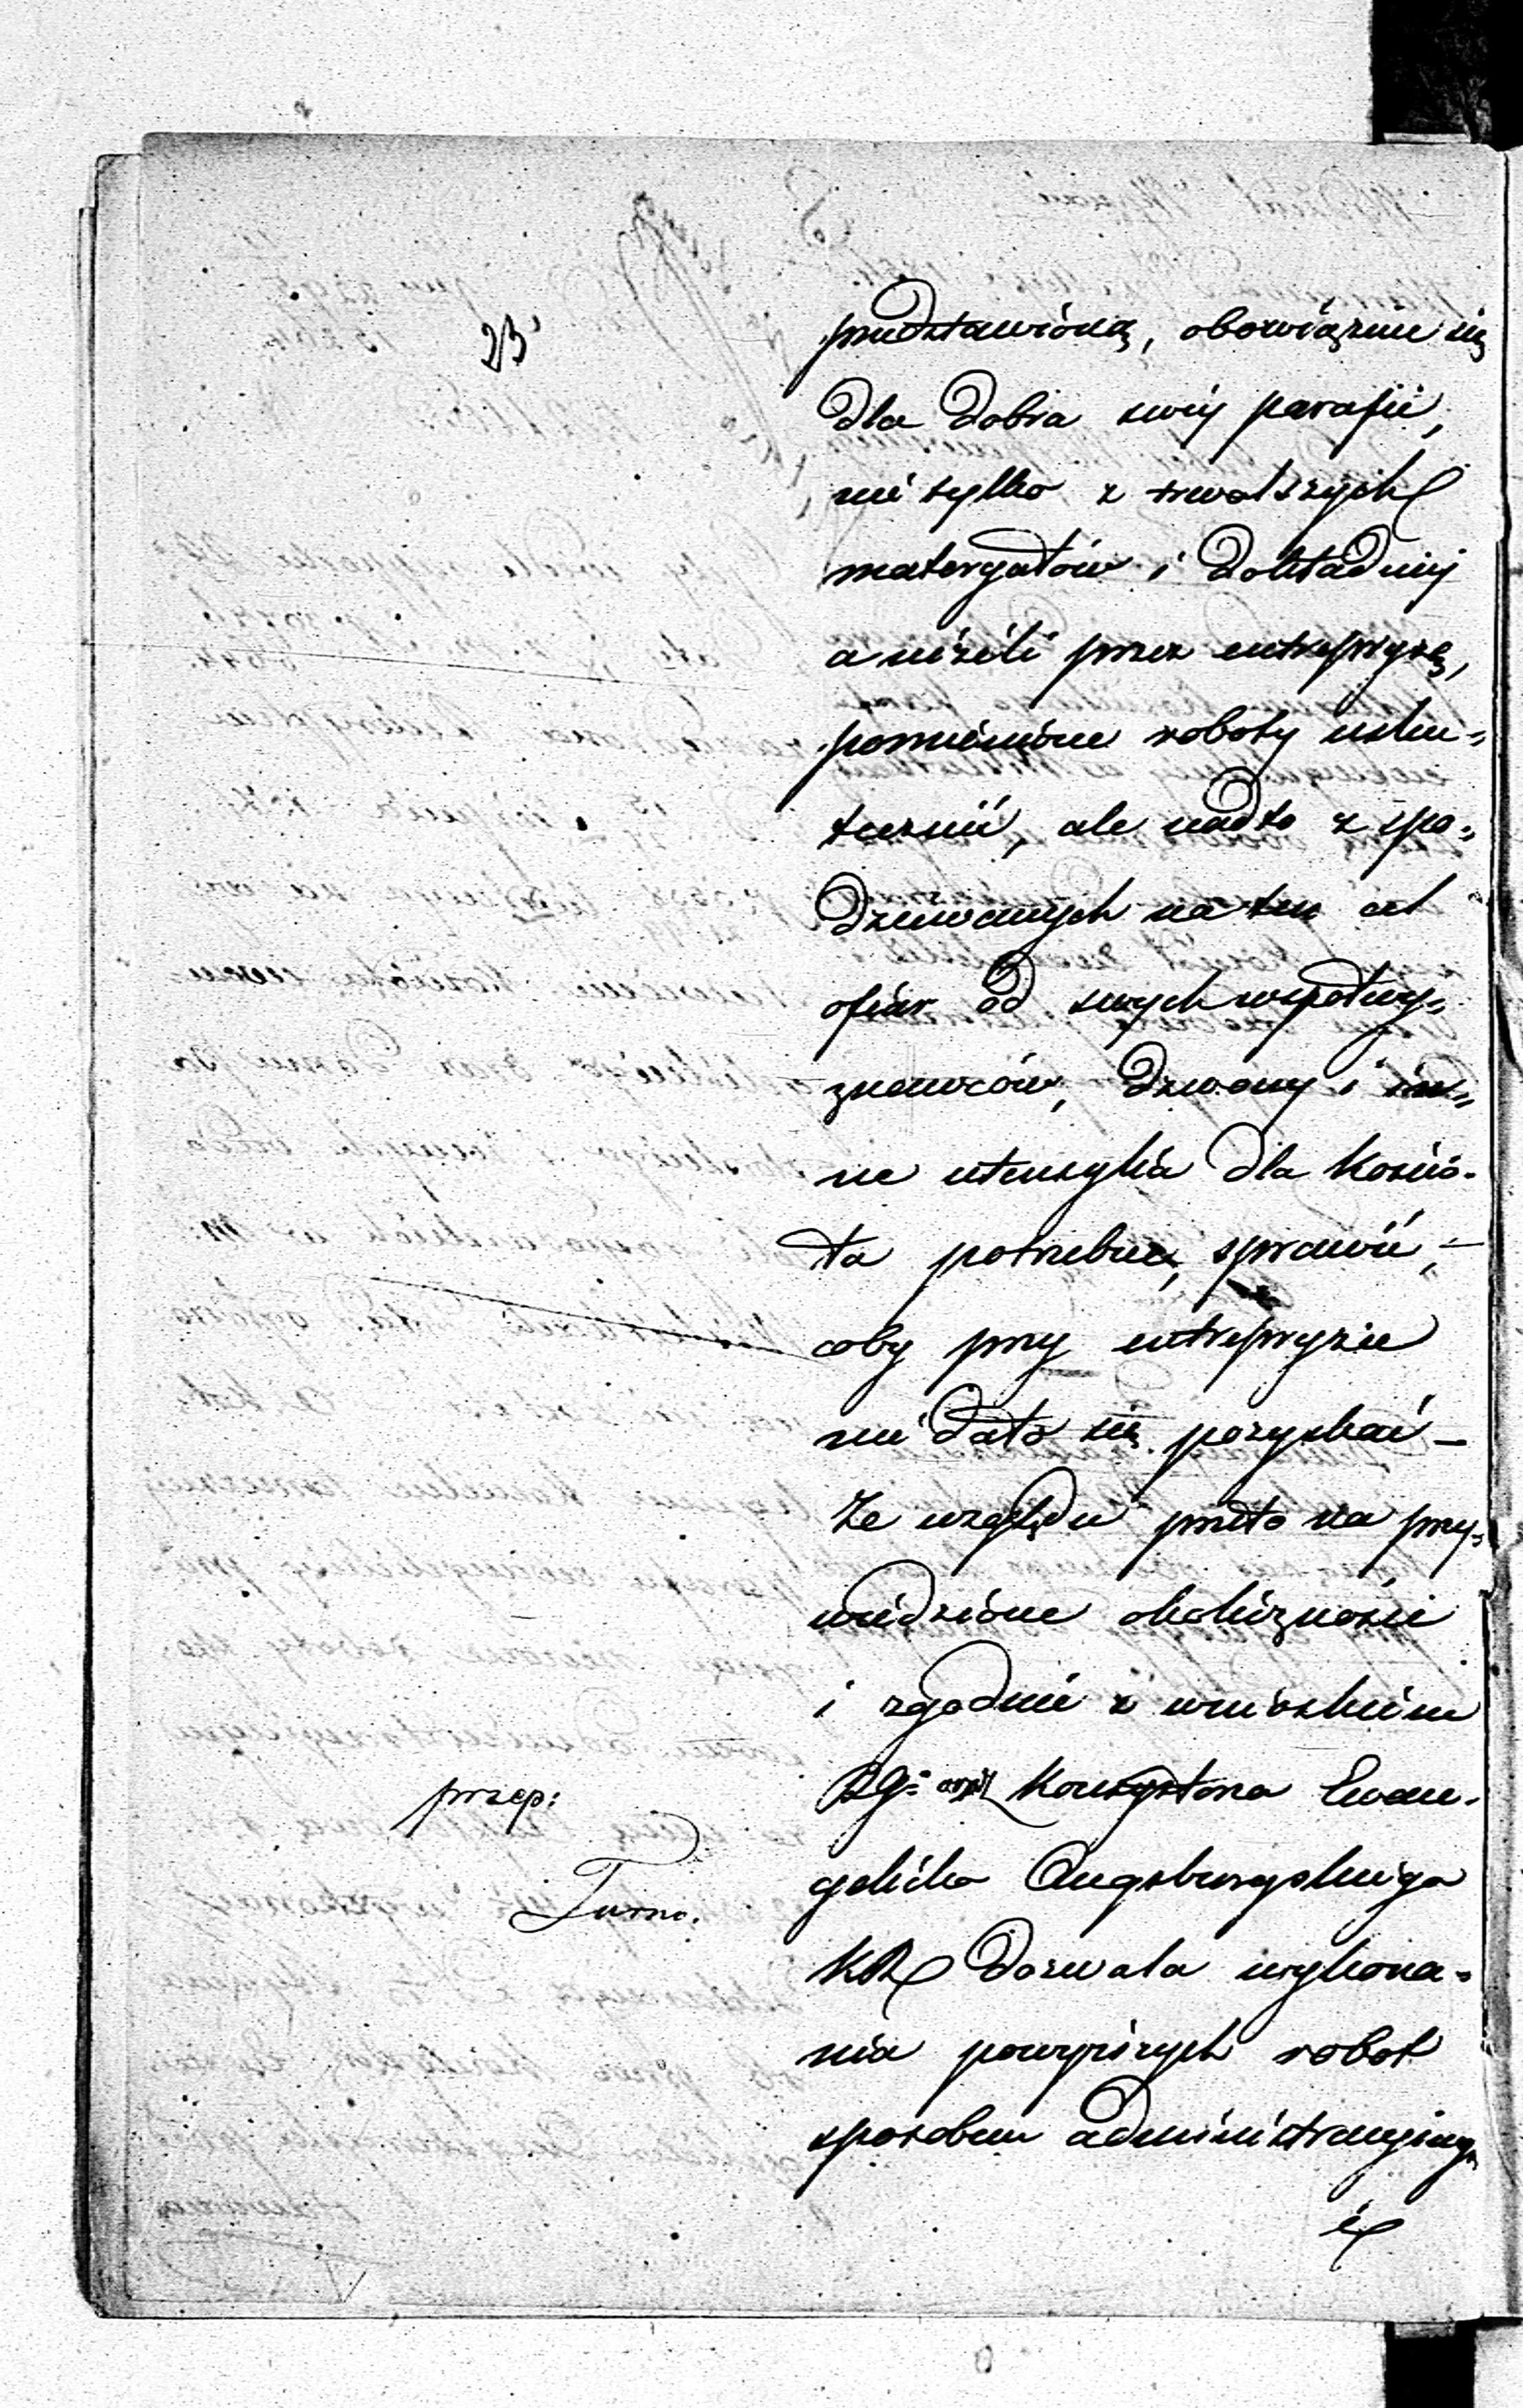 23
przedstawioną, obowiązuie się
dla dobra swéy parafii,
nié tylko z trwalszych
materyałów i dokładniéj
aniżéli przez entrepryzę,
pomiénióne roboty usku„
tecznić, ale nadto z spo„
dziewanych na ten cel
ofiar od swych wspołwy„
znawców, dzwony i in„
ne utensylia dla kościo„
ła potrzebne, sprawić, —
coby przy entrepryzie
nié dało się pozyskać —
Ze względu przeto na przy„
wiédzióne okoliczności
i zgodnié z wnióskiém
Konsystorza Ewan„
gelicko Augsburgskiégo
KR dozwala wykona„
nia powyższych robot
sposobem administracyjnym
i
przep:
Turno.